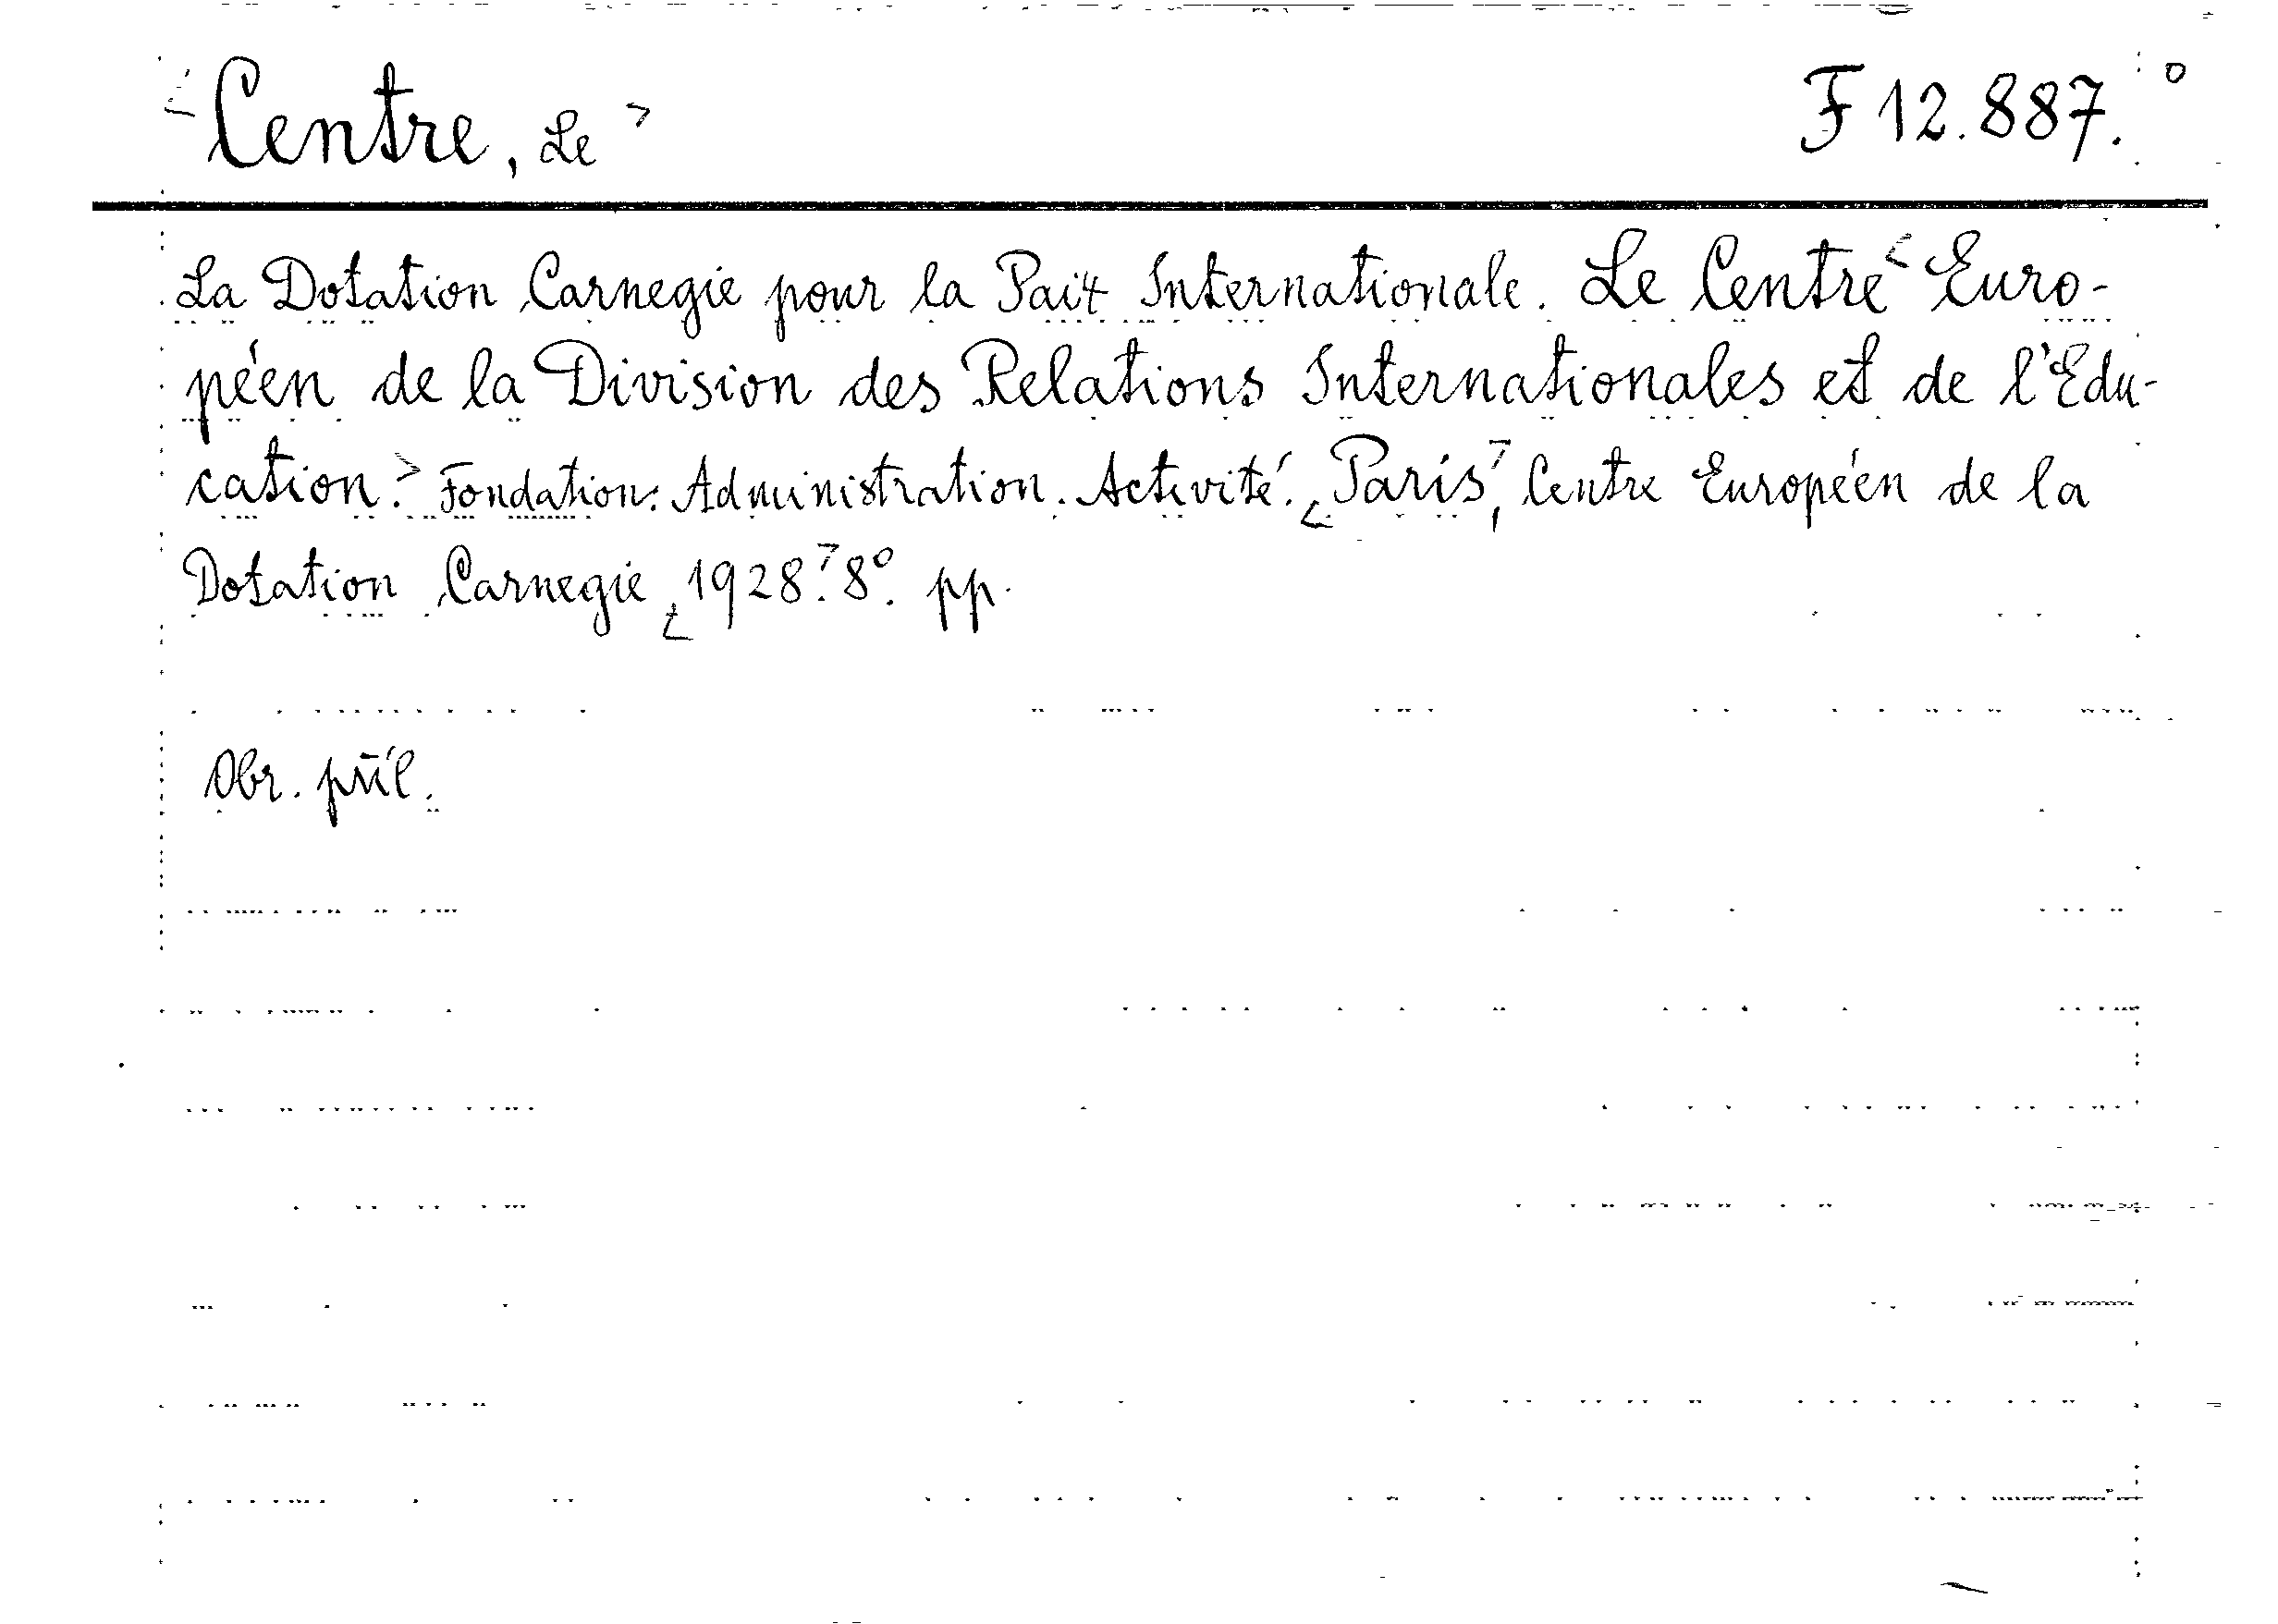 <Centre, Le>
F 12.887.
La Dotation Carnegie pour la Paix Internationale. Le Centre <Euro-
péen de la Division des Relations Internationales et de l'Edu-
cation.> Fondation. Administration. Activité. <Paris>, Centre Européen de la
Dotation Carnegie, <1928>. 8°. pp.
Obr. příl.